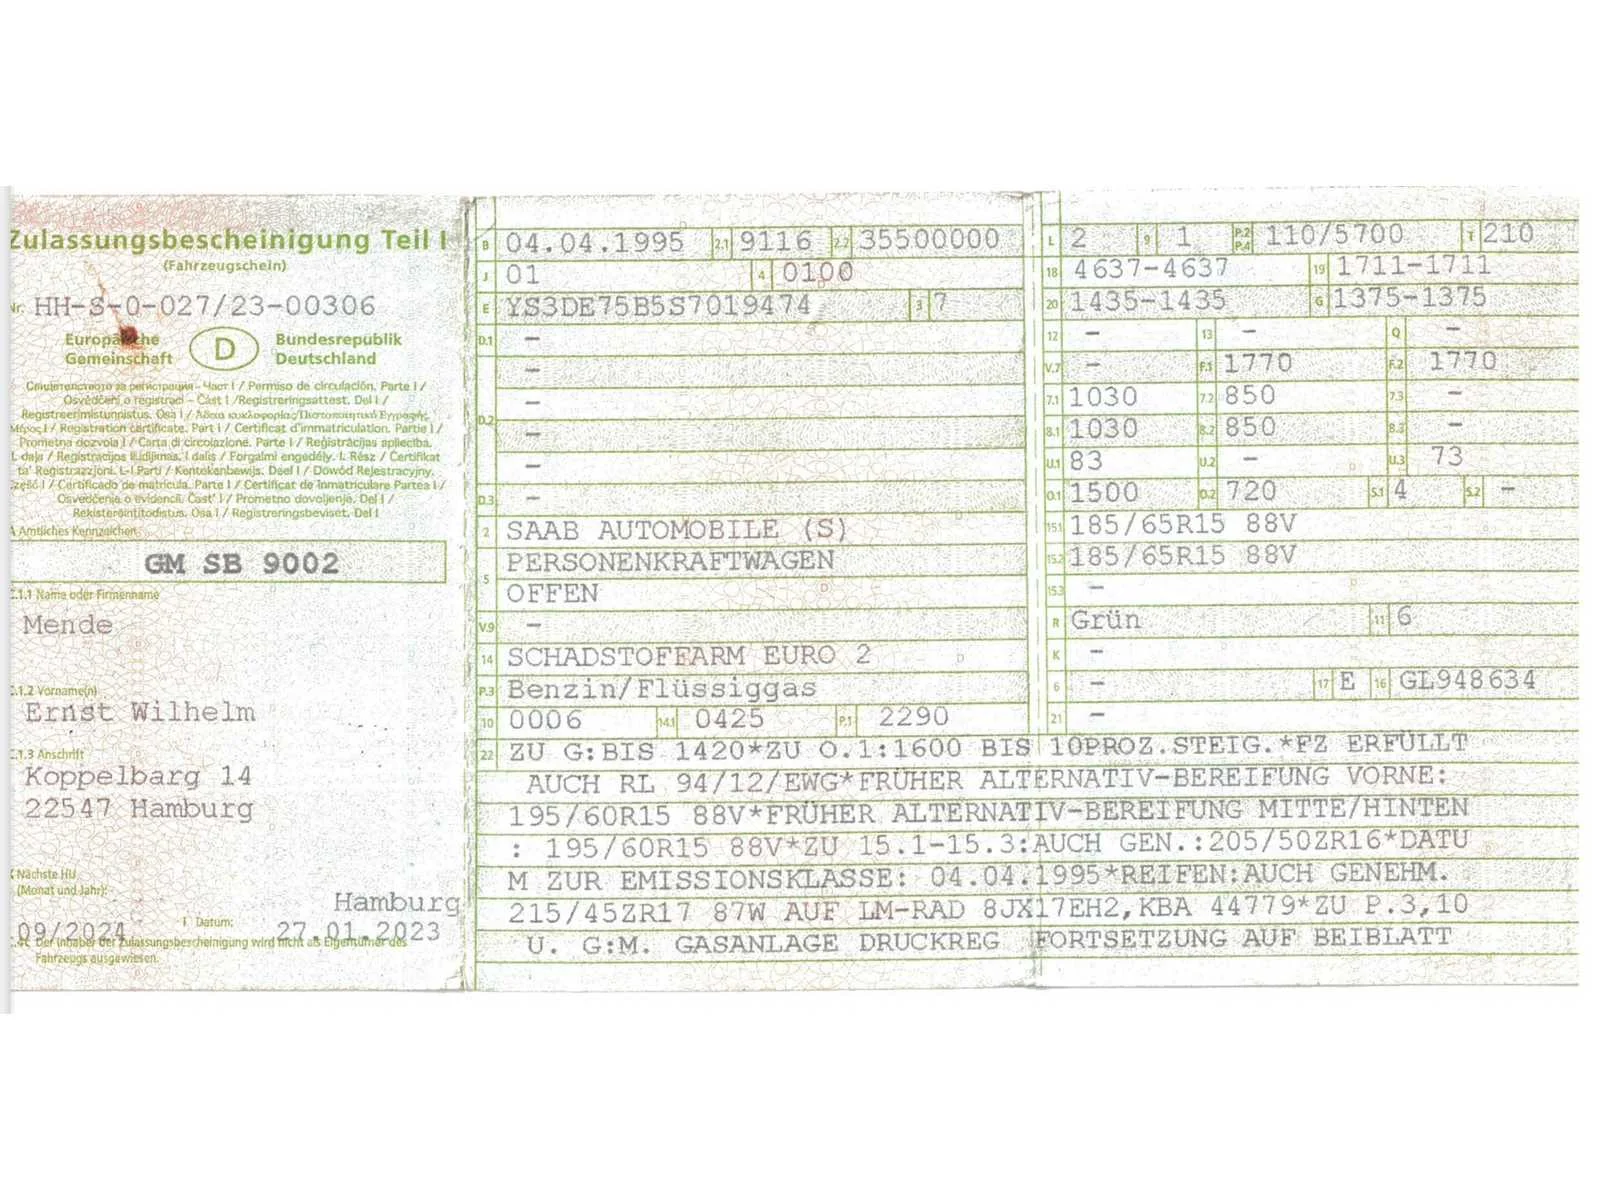 Zulassungsbescheinigung Teil I
(Fahrzeugschein)
Nr. HH-S-0-027/23-00306
Europäische Gemeinschaft
D
Bundesrepublik Deutschland
Свидетелството за регистрация - Част I / Permiso de circulación. Parte I /
Osvědčení o registraci - Část I /Registreringsattest. Del I /
Registreerimistunnistus. Osa I / Άδεια κυκλοφορίας/Πιστοποιητικό Εγγραφής.
Μέρος I / Registration certificate. Part I / Certificat d'immatriculation. Partie I /
Prometna dozvola I / Carta di circolazione. Parte I / Reģistrācijas apliecība.
I. daļa / Registracijos liudijimas. I dalis / Forgalmi engedély. I. Rész / Ċertifikat
ta' Reġistrazzjoni. L-I Parti / Kentekenbewijs. Deel I / Dowód Rejestracyjny.
Część I / Certificado de matrícula. Parte I / Certificat de înmatriculare Partea I /
Osvedčenie o evidencii. Časť I / Prometno dovoljenje. Del I /
Rekisteröintitodistus. Osa I / Registreringsbeviset. Del I
A Amtliches Kennzeichen
GM SB 9002
C.1.1 Name oder Firmenname
Mende
C.1.2 Vorname(n)
Ernst Wilhelm
C.1.3 Anschrift
Koppelbarg 14
22547 Hamburg
Nächste HU
(Monat und Jahr):
Hamburg
09/2024 I Datum: 27.01.2023
C.4c Der Inhaber der Zulassungsbescheinigung wird nicht als Eigentümer des
Fahrzeugs ausgewiesen.
B 04.04.1995 2.1 9116 2.2 35500000
J 01 4 0100
E YS3DE75B5S7019474 3 7
D.1 –
–
–
D.2 –
–
D.3 –
2 SAAB AUTOMOBILE (S)
5 PERSONENKRAFTWAGEN
OFFEN
V.9 –
14 SCHADSTOFFARM EURO 2
P.3 Benzin/Flüssiggas
10 0006 14.1 0425 P.1 2290
L 2 9 1 P.2 P.4 110/5700 T 210
18 4637-4637 19 1711-1711
20 1435-1435 G 1375-1375
12 – 13 – Q –
V.7 – F.1 1770 F.2 1770
7.1 1030 7.2 850 7.3 –
8.1 1030 8.2 850 8.3 –
U.1 83 U.2 – U.3 73
O.1 1500 O.2 720 S.1 4 S.2 –
15.1 185/65R15 88V
15.2 185/65R15 88V
15.3 –
R Grün 11 6
K –
6 – 17 E 16 GL948634
21 –
22 ZU G:BIS 1420*ZU O.1:1600 BIS 10PROZ.STEIG.*FZ ERFÜLLT
AUCH RL 94/12/EWG*FRÜHER ALTERNATIV-BEREIFUNG VORNE:
195/60R15 88V*FRÜHER ALTERNATIV-BEREIFUNG MITTE/HINTEN
: 195/60R15 88V*ZU 15.1-15.3:AUCH GEN.:205/50ZR16*DATU
M ZUR EMISSIONSKLASSE: 04.04.1995*REIFEN:AUCH GENEHM.
215/45ZR17 87W AUF LM-RAD 8JX17EH2,KBA 44779*ZU P.3,10
U. G:M. GASANLAGE DRUCKREG FORTSETZUNG AUF BEIBLATT